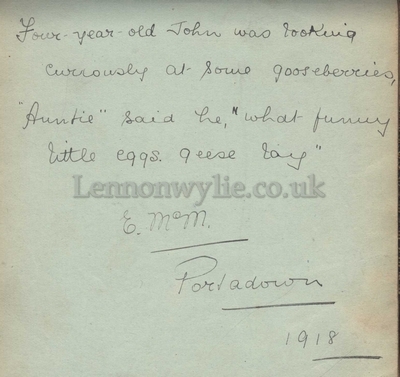 Four-year-old John was looking
curiously at some gooseberries,
"Auntie" said he, "what funny
little eggs. geese lay"
Lennonwylie.co.uk
E. McM.
Portadown
1918